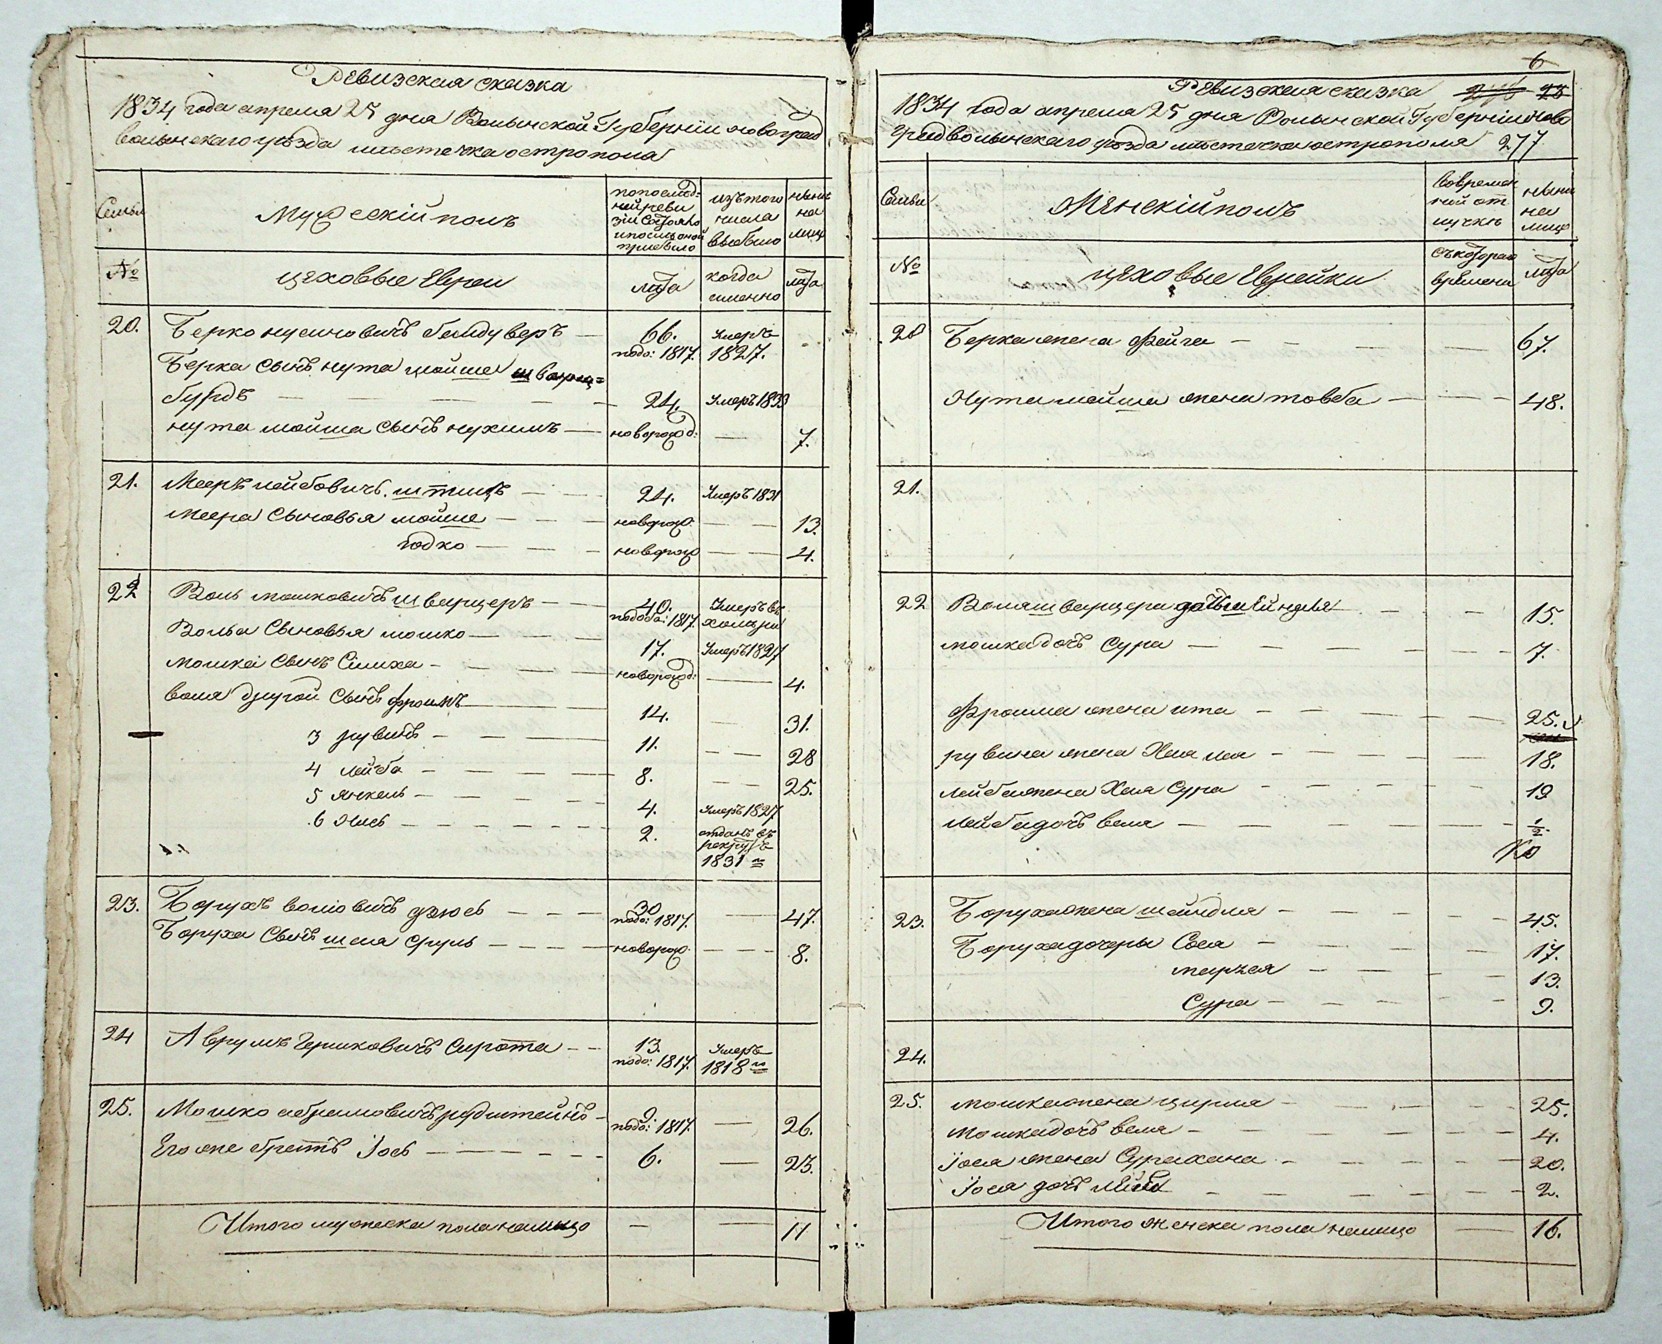 Ревизская сказка
1834 года апреля 25 дня Волынской Губернии новоград
волынскаго уезда местечка острополя
Семьи
Мужескій полъ
по послед:
ней реви
зіи состояло
и после оной
прибыло
изъ того
числа
выбыло
ныне
на
лицо
№
цеховые Евреи
лета
когда
именно
лета
20.
Берко нусиновичъ 66. умеръ
подо: 1817. 1827.
Берка сынъ нута мойше
бурдъ — 24. умеръ 1833
нута мойша сынъ нухимъ — новорожд: — 7.
21. Мееръ лейбовичъ 24. умеръ 1831
Меера сыновья мойше — новорож: — 13.
новорож — 4.
22 Воль мошковичъ шварцеръ — 40. умеръ въ
подоб: 1817.
Волья сыновья мошко — 17. умеръ 1827
мошка сынъ Симха — новорожд: — 4.
воля другой сынъ фроимъ — 14. — 31.
3 рувинъ — 11. — 28
4 лейба — 8. — 25.
5 янкель — 4. умеръ 1827
6 — 2. отданъ въ
рекруты
1831 го
23. Борухъ волiовичъ 30 — 47.
подо: 1817.
Боруха сынъ шая сруль — новорож: — 8.
24 Аврумъ Гершковичъ сирота — 13. умеръ
подо: 1817. 1818 го
25. Мошко абрамовичъ рудштейнъ — 9. — 26.
подо: 1817.
Его же братъ Iось — 6. — 23.
Итого мужеска пола налицо — — 11
6
Ревизская сказка
1834 года апреля 25 дня Волынской Губернии ново
градволынскаго уезда местечка острополя 277
Семьи
Женскій полъ
во времен
ной от
лучке
ныне
на
лицо
№
цеховые Еврейки
съ котораго
времени
лета
20 Берка жена фейга — 67.
Нута мойша жена товба — 48.
21.
22 Воля шварцера дочь шейндля — 15.
мошка дочь сура — 7.
Фроима жена ита — 25.
рувина жена Хая лея — 18.
лейба жена Хая Сура — 19
лейба дочь веля — 1/2.
23. Боруха жена шейндля — 45.
Боруха дочеры Сося — 17.
13.
Сура — 9.
24.
25. мошка жена цирля — 25.
мошка дочь веля — 4.
Iося жена Сура хана — 20.
Iося дочь — 2.
Итого женска пола налицо — 16.